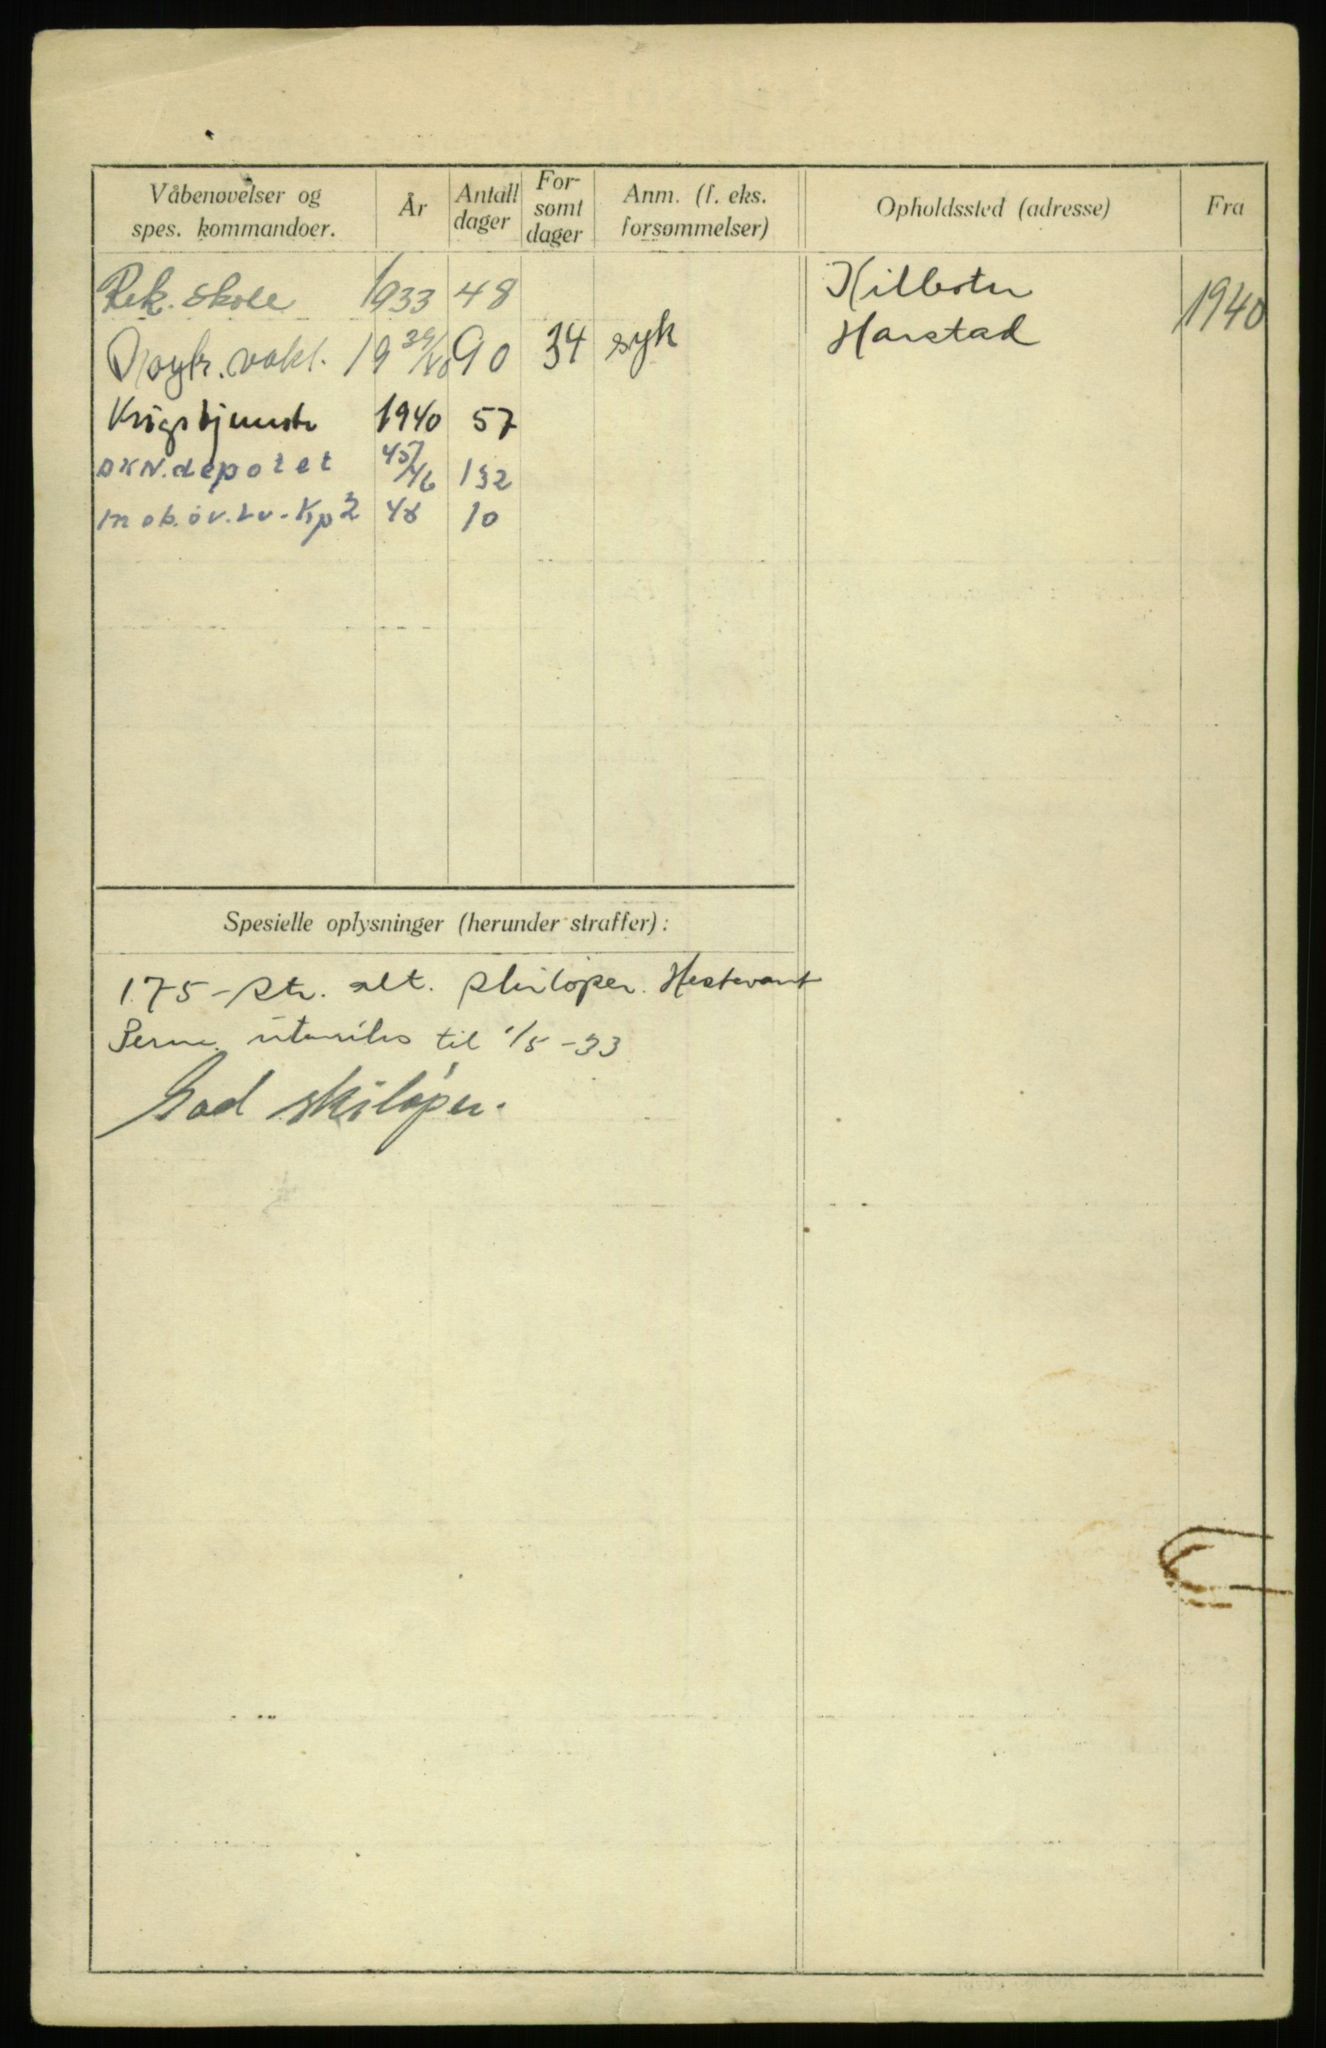 Våbenøvelser og spes. kommandoer. År Antall dager For-somt dager Anm. (f. eks. forsømmelser) Opholdssted (adresse) Fra
Rek. skole 1933 48
Nøytr. vakt. 19 39/40 90 34 syk
Krigstjeneste 1940 57
DKN. depotet 45/46 132
mob. øv. Lv. Kp 2 48 10
Kilbotn
Harstad 1940
Spesielle oplysninger (herunder straffer):
1.75 - str. alt. skiløper. Hestevant
Perm. utenriks til 1/5-33
God skiløper.